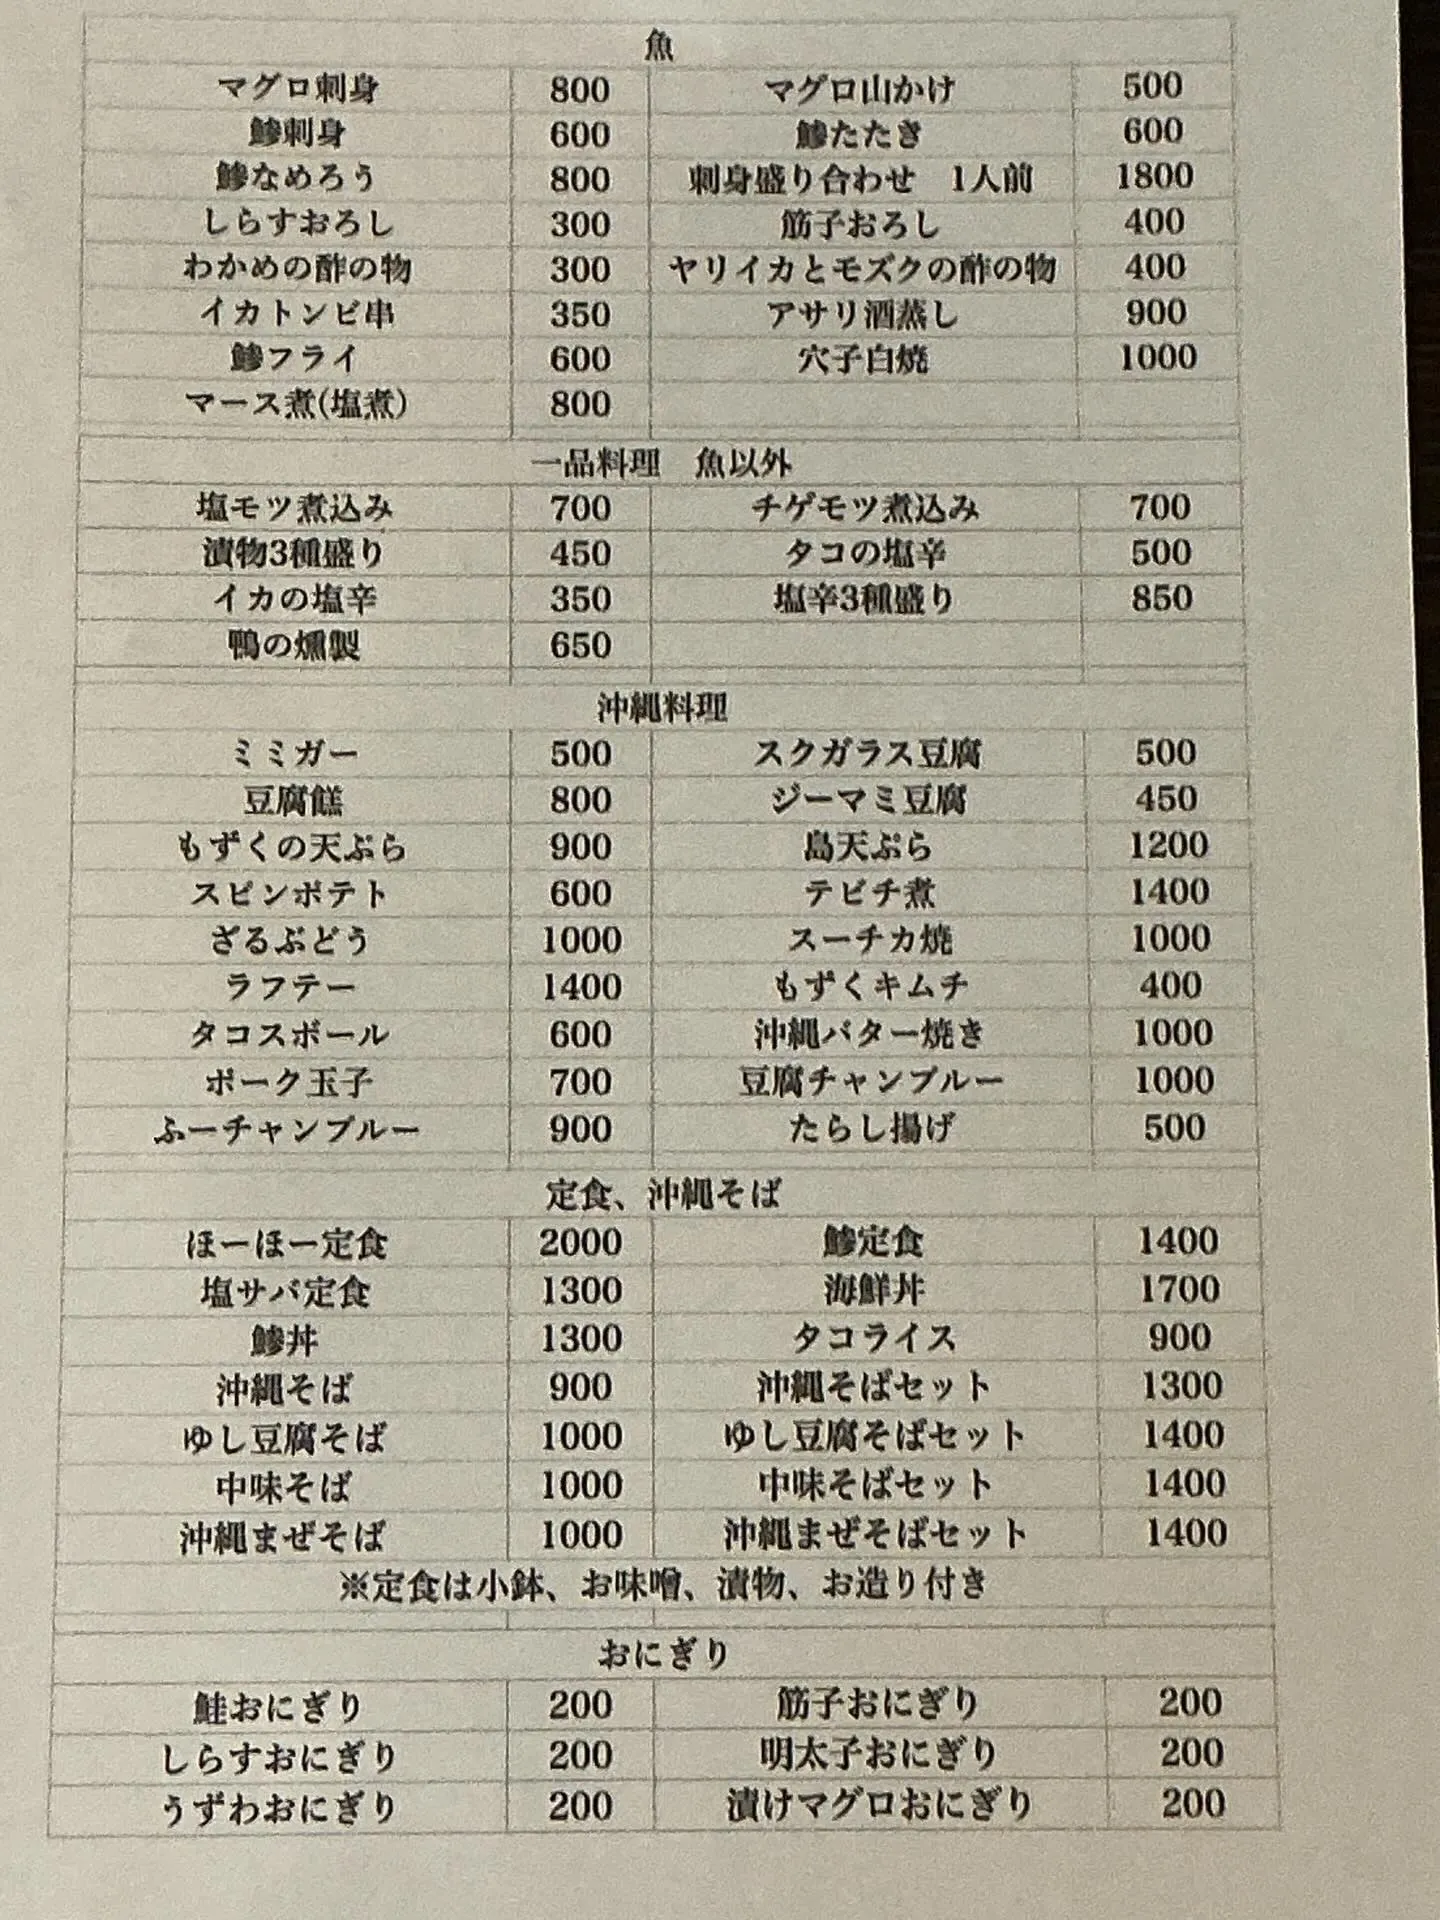 魚
マグロ刺身 800 マグロ山かけ 500
鯵刺身 600 鯵たたき 600
鯵なめろう 800 刺身盛り合わせ 1人前 1800
しらすおろし 300 筋子おろし 400
わかめの酢の物 300 ヤリイカとモズクの酢の物 400
イカトンビ串 350 アサリ酒蒸し 900
鯵フライ 600 穴子白焼 1000
マース煮(塩煮) 800
一品料理 魚以外
塩モツ煮込み 700 チゲモツ煮込み 700
漬物3種盛り 450 タコの塩辛 500
イカの塩辛 350 塩辛3種盛り 850
鴨の燻製 650
沖縄料理
ミミガー 500 スクガラス豆腐 500
豆腐餻 800 ジーマミ豆腐 450
もずくの天ぷら 900 島天ぷら 1200
スピンポテト 600 テビチ煮 1400
ざるぶどう 1000 スーチカ焼 1000
ラフテー 1400 もずくキムチ 400
タコスボール 600 沖縄バター焼き 1000
ポーク玉子 700 豆腐チャンプルー 1000
ふーチャンプルー 900 たらし揚げ 500
定食、沖縄そば
ほーほー定食 2000 鯵定食 1400
塩サバ定食 1300 海鮮丼 1700
鯵丼 1300 タコライス 900
沖縄そば 900 沖縄そばセット 1300
ゆし豆腐そば 1000 ゆし豆腐そばセット 1400
中味そば 1000 中味そばセット 1400
沖縄まぜそば 1000 沖縄まぜそばセット 1400
※定食は小鉢、お味噌、漬物、お造り付き
おにぎり
鮭おにぎり 200 筋子おにぎり 200
しらすおにぎり 200 明太子おにぎり 200
うずわおにぎり 200 漬けマグロおにぎり 200